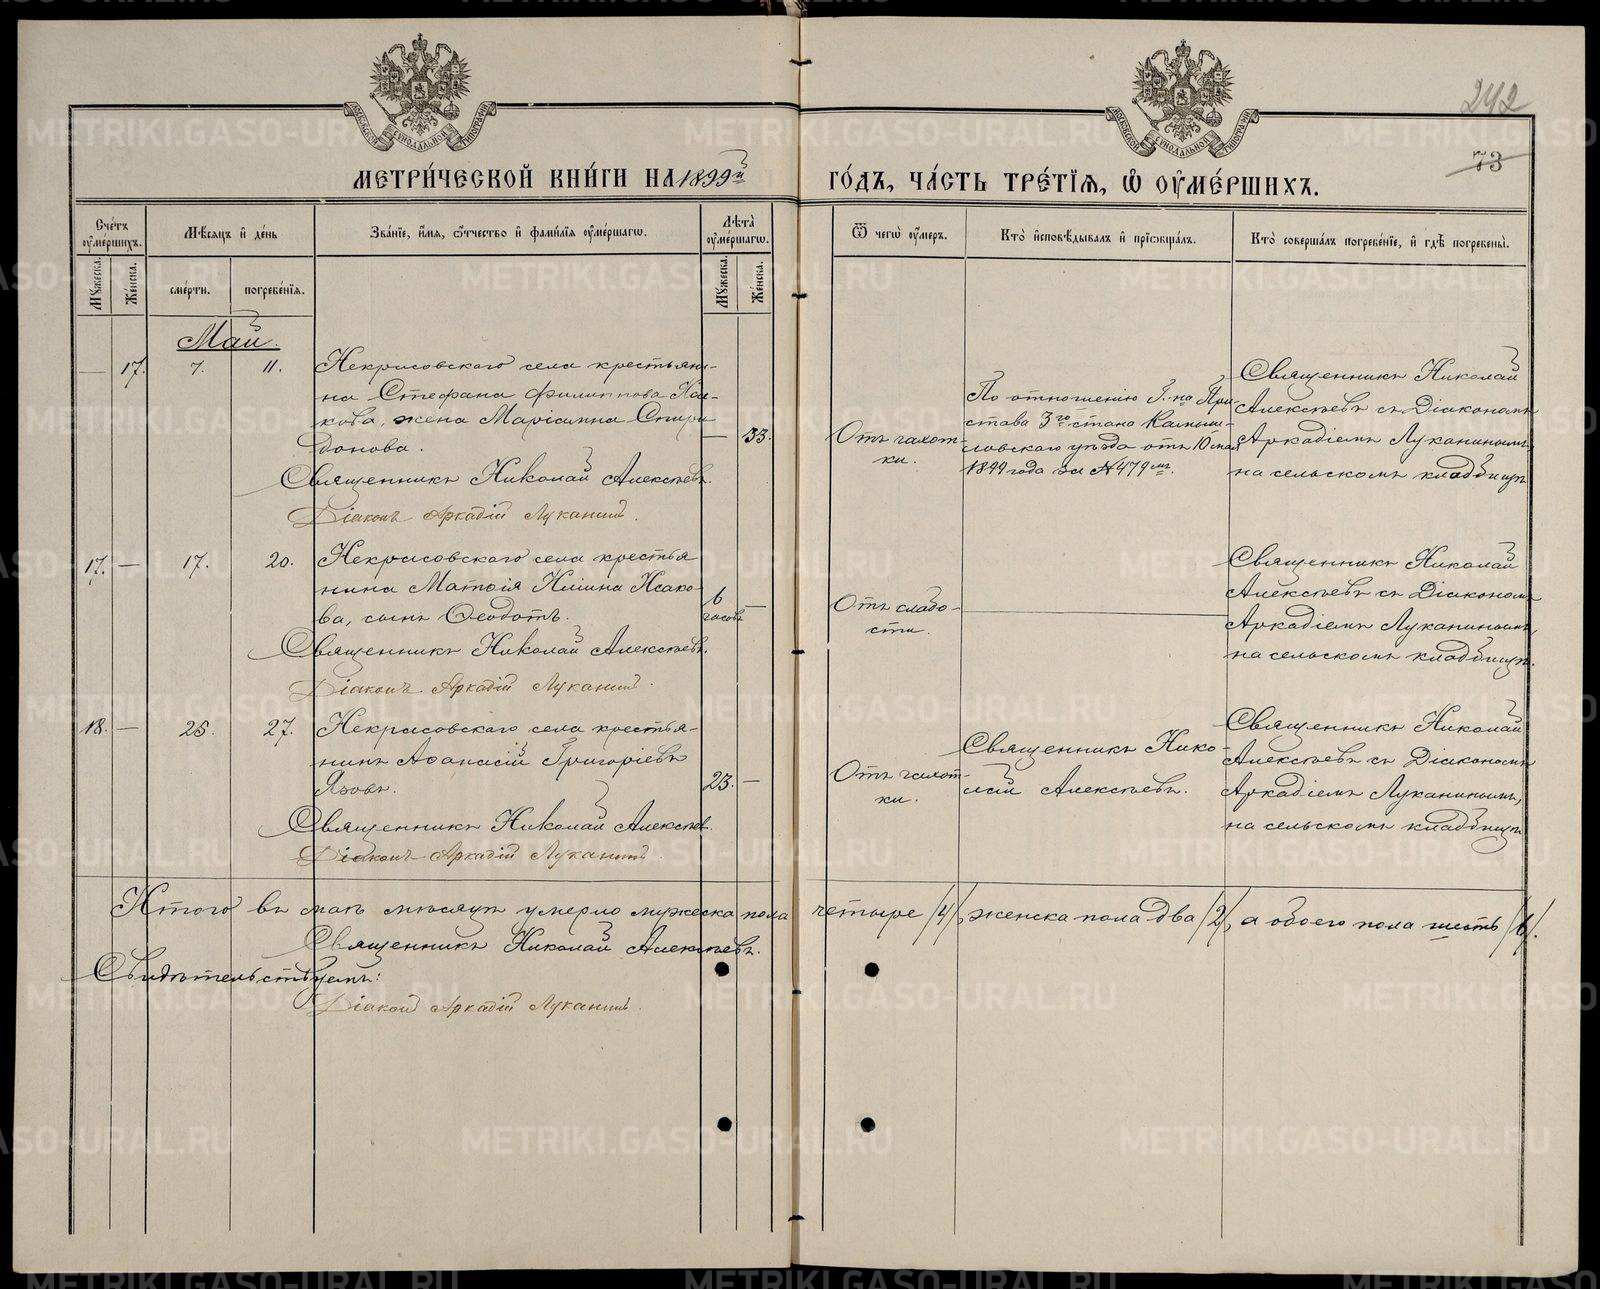 242
73
МОСКОВСКОЙ СѴНОДАЛЬНОЙ ТИПОГРАФІИ
МОСКОВСКОЙ СѴНОДАЛЬНОЙ ТИПОГРАФІИ
МЕТРИ́ЧЕСКОЙ КНИ́ГИ НА 1899й ГО́ДЪ, ЧА́СТЬ ТРЕ́ТІѦ, Ѡ҆ ОУ҆МЕ́РШИХЪ.
Сче́тъ оу҆ме́ршихъ.
Мꙋ́жеска.
Же́нска.
Мѣ́сѧцъ и҆ де́нь
сме́рти.
погребе́нїѧ.
Зва́нїе, и҆́мѧ, ѻ҆́тчество и҆ фами́лїѧ оу҆ме́ршагѡ.
Лѣ́та оу҆ме́ршагѡ.
Мꙋ́жеска.
Же́нска.
Ѿ чегѡ̀ оу҆́меръ.
Кто̀ и҆сповѣ́дывалъ и҆ прїѡбща́лъ.
Кто̀ соверша́лъ погребе́нїе, и҆ гдѣ̀ погребены̀.
Май.
— 17. 7. 11. Некрасовскаго села крестьяни-
на Стефана Филиппова
кова, жена Маріамна Спири
донова. — 33.
Священникъ Николай Алексѣевъ.
Діаконъ Аркадій Луканинъ.
Отъ чахот-
ки.
По отношенію Г-на При-
става 3го стана Камыш-
ловскаго уѣзда отъ 10 мая
1899 года за № 479мъ.
Священникъ Николай
Алексѣевъ съ Діакономъ
Аркадіемъ Луканинымъ,
на сельскомъ кладбищѣ.
17. — 17. 20. Некрасовскаго села крестья
нина Матѳія Иліина Исако-
ва, сынъ Ѳеодотъ. 6 часовъ —
Священникъ Николай Алексѣевъ.
Діаконъ Аркадій Луканинъ.
Отъ слабо-
сти.
Священникъ Николай
Алексѣевъ съ Діакономъ
Аркадіемъ Луканинымъ,
на сельскомъ кладбищѣ.
18. — 25. 27. Некрасовскаго села крестья-
нинъ Аѳанасій Григоріевъ
Язовъ. 23. —
Священникъ Николай Алексѣевъ.
Діаконъ Аркадій Луканинъ.
Отъ чахот-
ки.
Священникъ Нико-
лай Алексѣевъ.
Священникъ Николай
Алексѣевъ съ Діакономъ
Аркадіемъ Луканинымъ,
на сельскомъ кладбищѣ.
Итого въ маѣ мѣсяцѣ умерло мужеска пола четыре /4/, женска пола два /2/, а обоего пола шесть /6/.
Священникъ Николай Алексѣевъ.
Свидѣтельствуемъ:
Діаконъ Аркадій Луканинъ.
METRIKI.GASO-URAL.RU